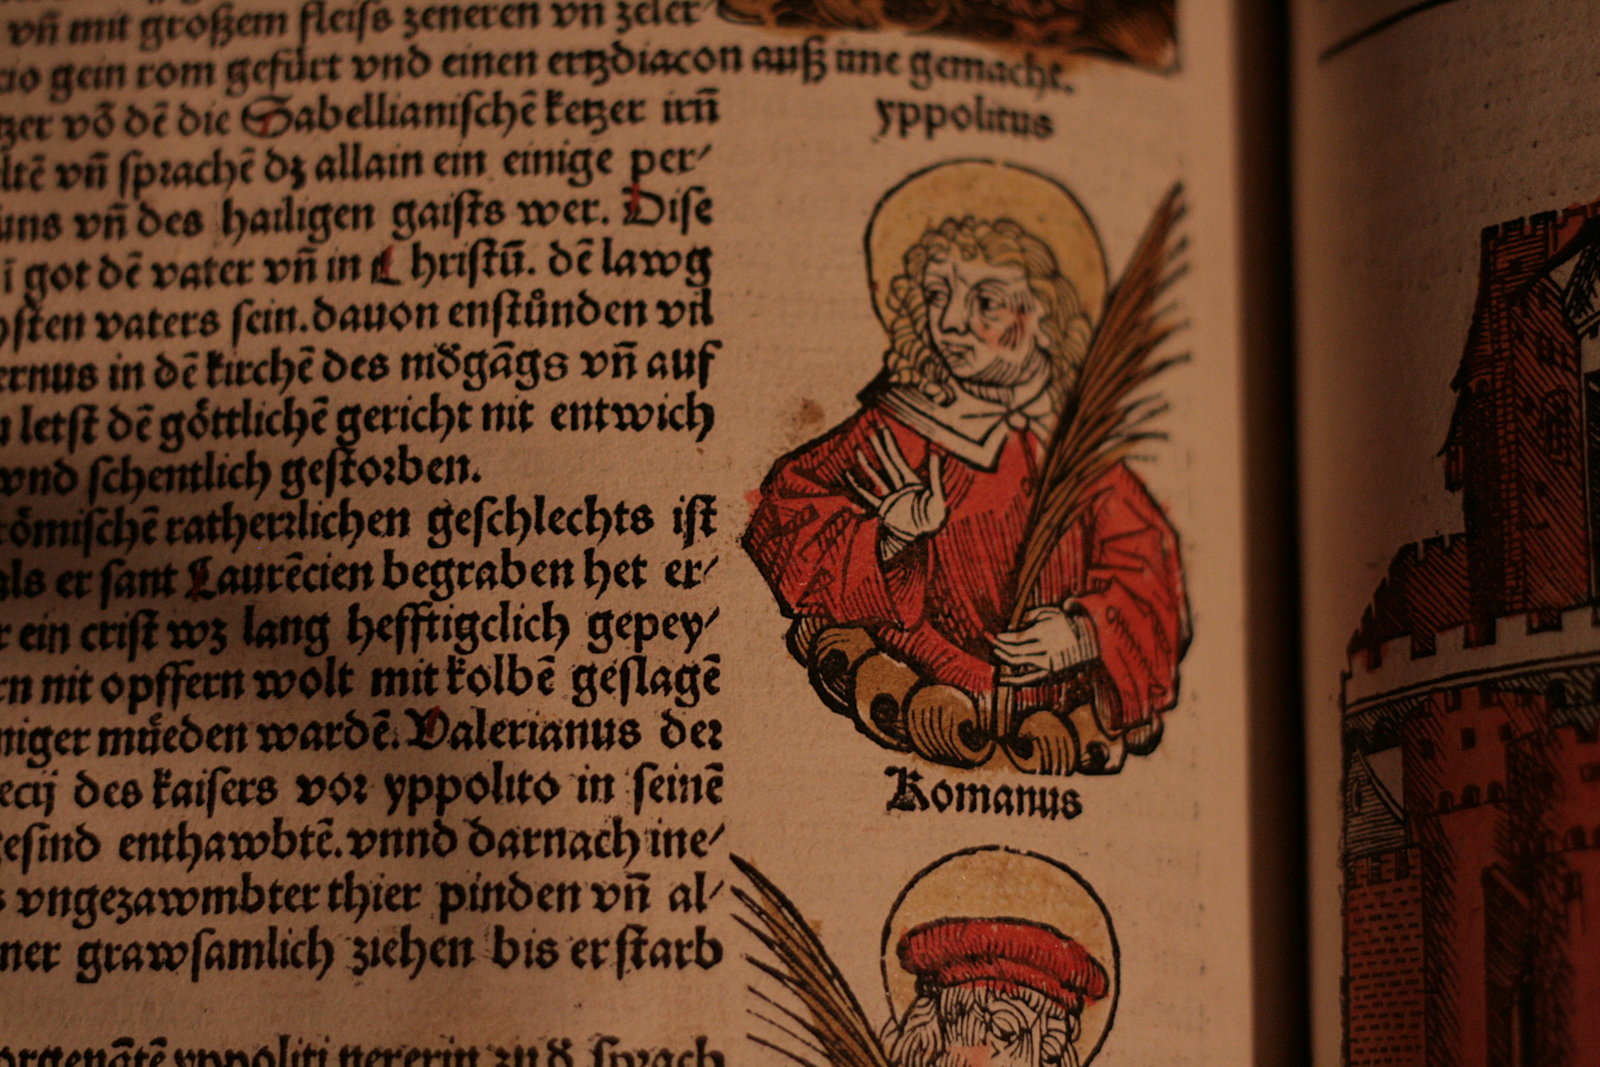 vñ mit großem fleiſs zeneren vñ zeler
gein rom gefürt vnd einen ertzdiacon auß ime gemacht.
vō dē die Sabellianiſchē ketzer irñ
vñ ſprachē dz allain ein einige per⸗
vñ des hailigen gaiſts wer. Diſe
got dē vater vñ in Chriſtū. dē lawg
vaters ſein. dauon enſtůnden vil
in dē kirchē des nidgāgs vñ auf
letſt dē göttlichē gericht nit entwich
vnd ſchentlich geſtorben.
römiſchē ratherrlichen geſchlechts iſt
als er ſant Laurēcien begraben het er⸗
ein criſt wz lang hefftigclich gepey⸗
nit opffern wolt mit kolbē geſlagē
müeden wardē. Valerianus der
des kaiſers vor yppolito in ſeinē
geſind enthawbtē. vnnd darnach ine⸗
vngezawmbter thier pinden vñ al⸗
grawſamlich ziehen bis er ſtarb
yppoliti zu ſprach
yppolitus
Romanus